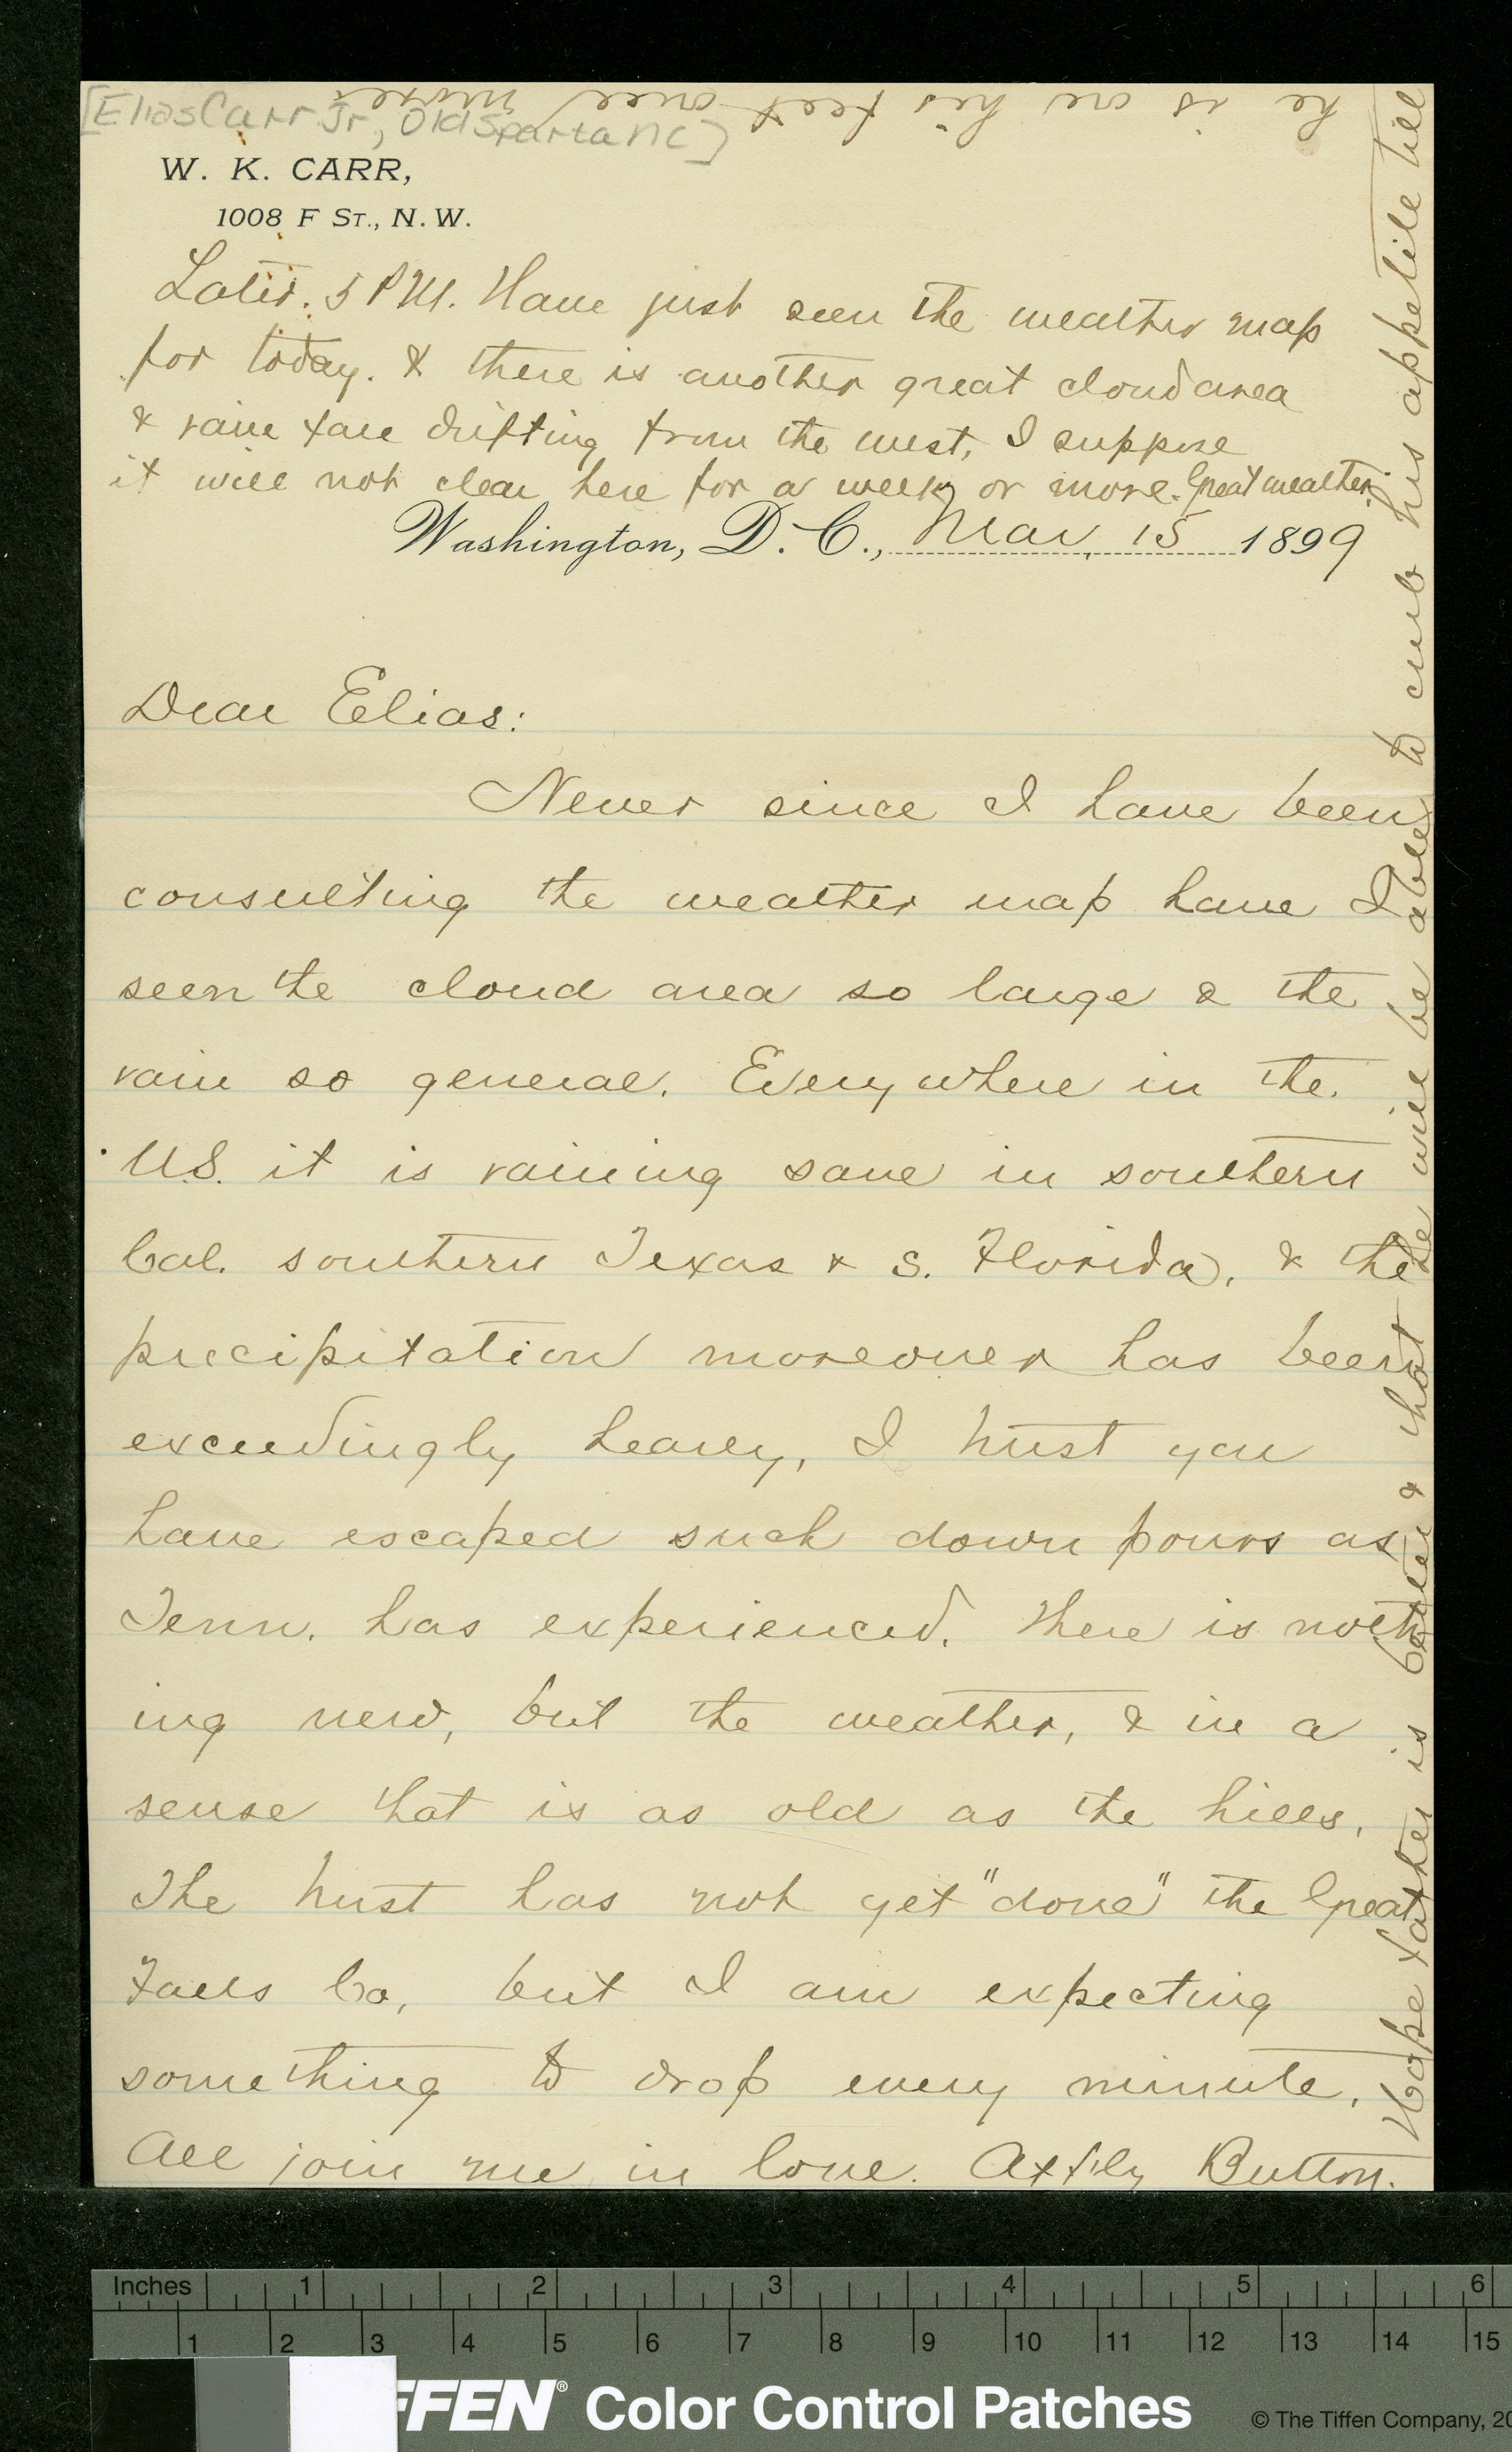 [Elias Carr Jr, Old Sparta NC]
W. K. CARR,
1008 F ST., N. W.
Later. 5 P M. Have just seen the weather map
for today. & there is another great cloud area
& rain fall drifting from the west, I suppose
it will not clear here for a week or more. Great weather.
Washington, D. C., Mar. 15 1899
Dear Elias:
Never since I have been
consulting the weather map have I
seen the cloud area so large & the
rain so general. Every where in the
U.S. it is raining save in southern
Cal. southern Texas & S. Florida, & the
precipitation moreover has been
exceedingly heavy, I trust you
have escaped such down pours as
Tenn. has experienced. There is noth
ing new, but the weather, & in a
sense that is as old as the hills.
The trust has not yet "done" the Great
Falls Co, but I am expecting
something to drop every minute.
All join me in love. Aff'ly Button.
Hope father is better & that he will be able to curb his appetite till
he is on his feet once more
Inches 1 2 3 4 5 6
1 2 3 4 5 6 7 8 9 10 11 12 13 14 15
FFEN® Color Control Patches
© The Tiffen Company, 20